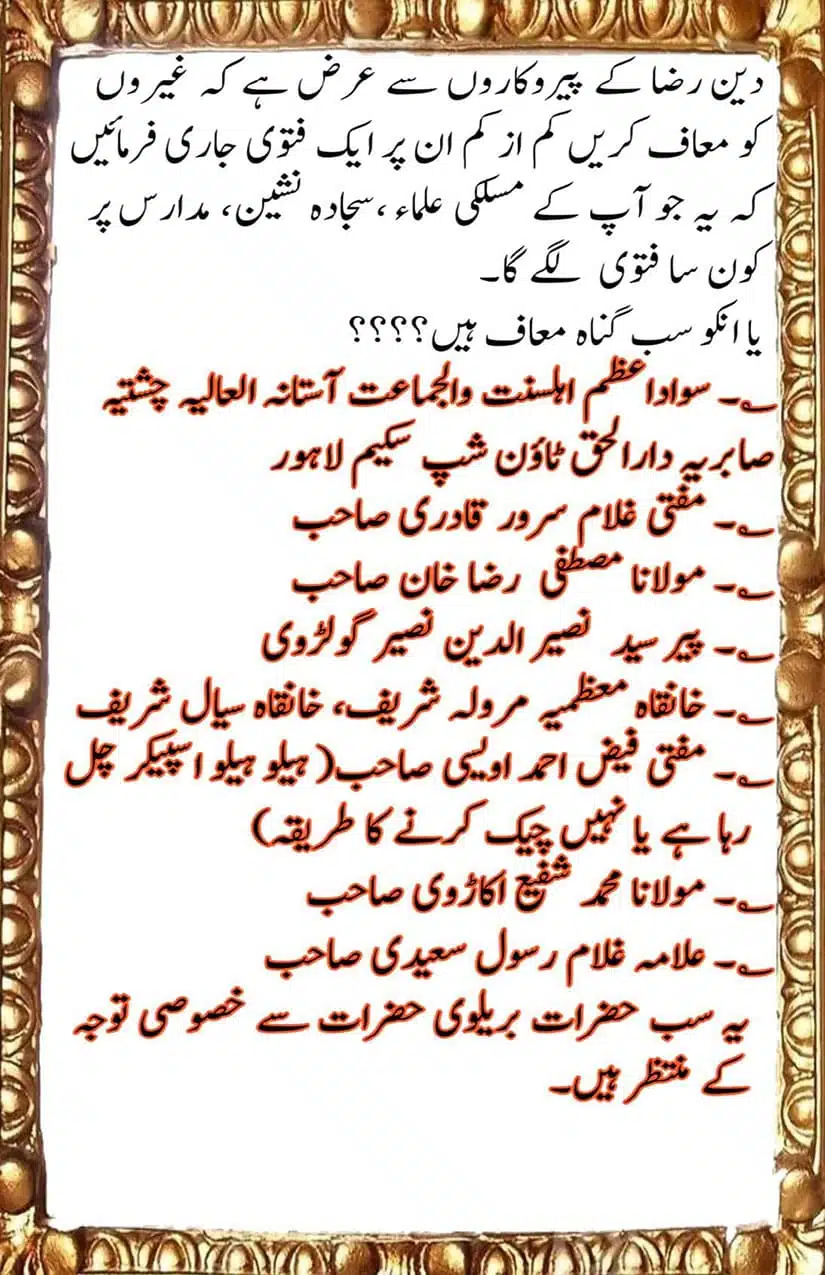 دین رضا کے پیروکاروں سے عرض ہے کہ غیروں
کو معاف کریں کم از کم ان پر ایک فتوی جاری فرمائیں
کہ یہ جو آپ کے مسلکی علماء ،سجادہ نشین، مدارس پر
کون سا فتوی لگے گا۔
یا انکو سب گناہ معاف ہیں؟؟؟؟
؎۔ سواداعظم اہلسنت والجماعت آستانہ العالیہ چشتیہ
صابریہ دارالحق ٹاؤن شپ سکیم لاہور
؎۔ مفتی غلام سرور قادری صاحب
؎۔ مولانا مصطفی رضا خان صاحب
؎۔ پیر سید نصیر الدین نصیر گولڑوی
؎۔ خانقاہ معظمیہ مرولہ شریف، خانقاہ سیال شریف
؎۔ مفتی فیض احمد اویسی صاحب( ہیلو ہیلو اسپیکر چل
رہا ہے یا نہیں چیک کرنے کا طریقہ)
؎۔ مولانا محمد شفیع اکاڑوی صاحب
؎۔ علامہ غلام رسول سعیدی صاحب
یہ سب حضرات بریلوی حضرات سے خصوصی توجہ
کے منتظر ہیں۔